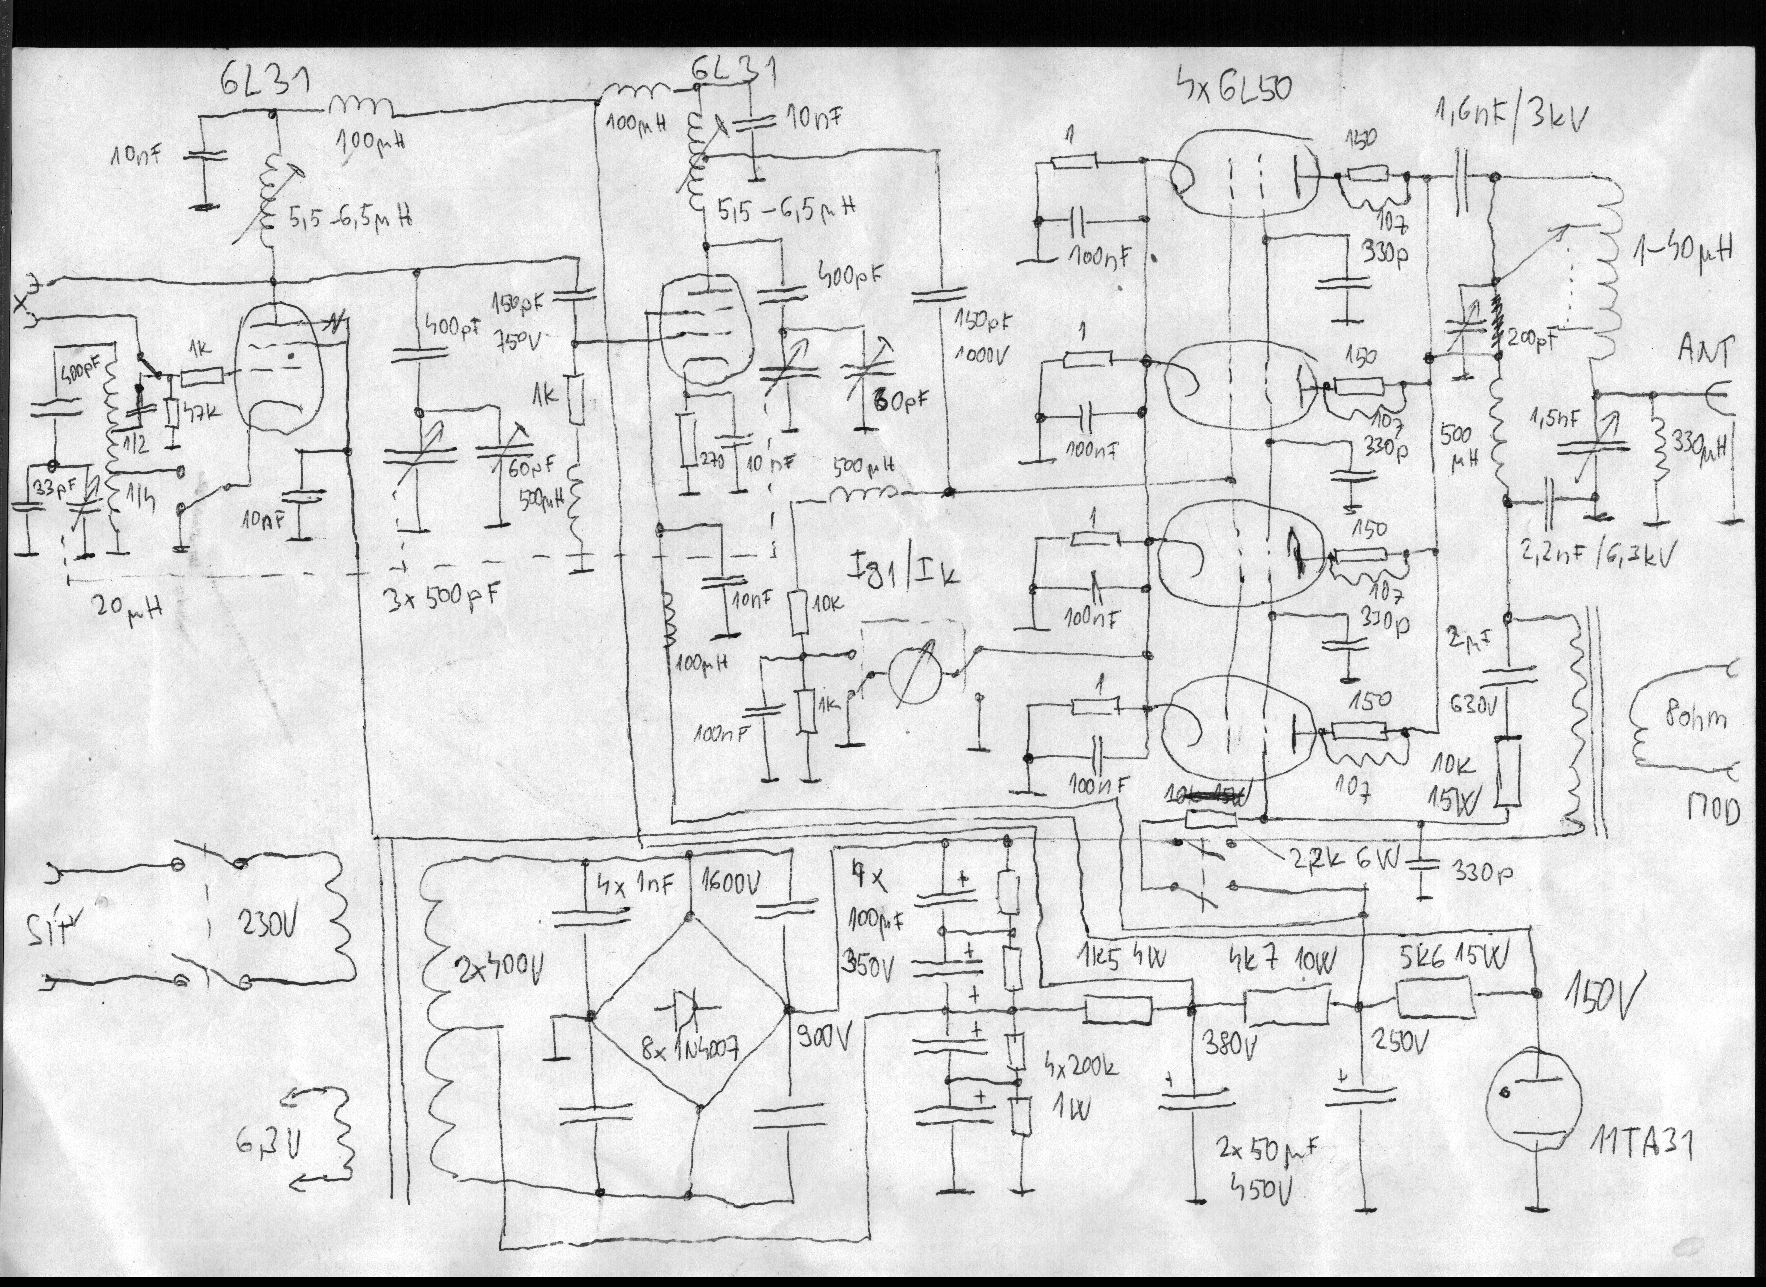 6L31
6L31
4x6L50
10nF
100µH
100µH
10nF
1,6nF/3kV
5,5-6,5µH
5,5-6,5µH
1
150
100nF
107
330p
1-40µH
X
400pF
1k
47k
1/2
33pF
1/4
10nF
400pF
150pF
750V
1k
60pF
500µH
400pF
60pF
150pF
1000V
270
10nF
500µH
1
150
100nF
107
330p
200pF
ANT
500
µH
1,5nF
330µH
2,2nF/6,3kV
20µH
3x500pF
10nF
10k
Ig1/Ik
1
150
100nF
107
330p
100µH
100nF
1k
1
150
100nF
107
2µF
630V
10k
15W
8ohm
MOD
2,2k 6W
330p
SÍŤ
230V
2x400V
4x 1nF 1600V
8x1N4007
900V
4x
100µF
350V
1k5 4W
4k7 10W
5k6 15W
380V
250V
150V
4x200k
1W
2x50µF
450V
6,3V
11TA31